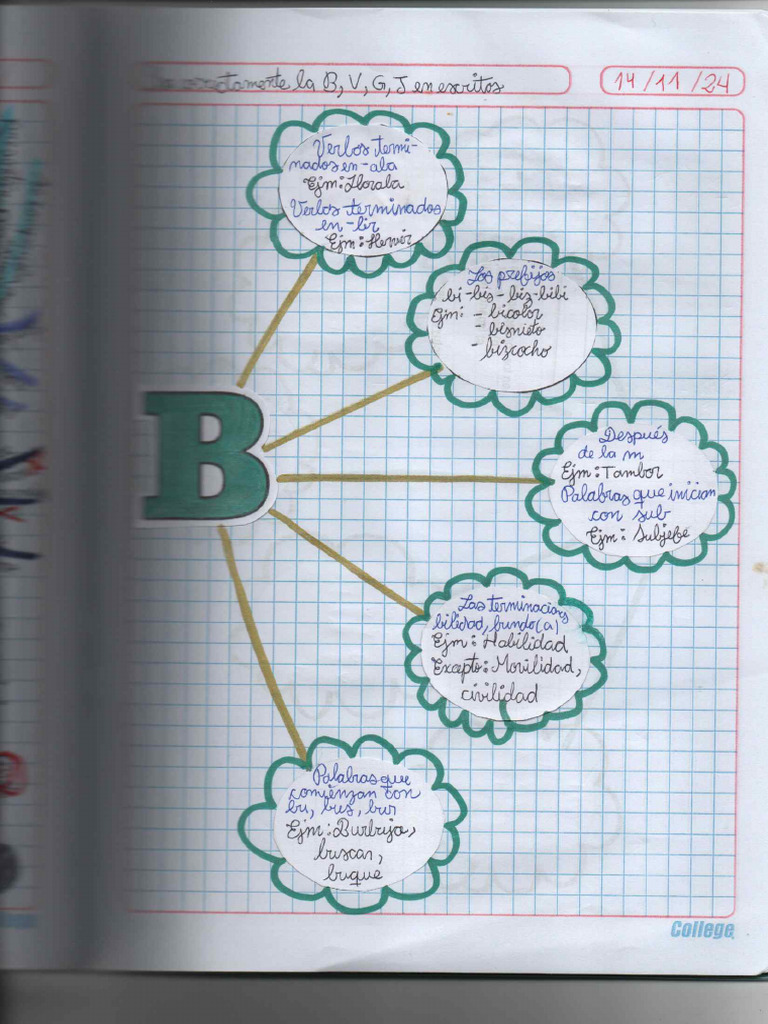 correctamente la B, V, G, J en escritos
14/11/24
Verbos termi-
nados en -aba
Ejm: Lloraba
Verbos terminados
en -bir
Ejm: Hervir
Los prefijos
bi-bis-biz-bibi
Ejm: - bicolor
- bisnieto
- bizcocho
B
Después
de la m
Ejm: Tambor
Palabras que inician
con sub
Ejm: Subjefe
Las terminaciones
bilidad, bundo(a)
Ejm: Habilidad
Excepto: Movilidad,
civilidad
Palabras que
comienzan con
bu, bus, bur
Ejm: Burbuja,
buscar,
buque
College